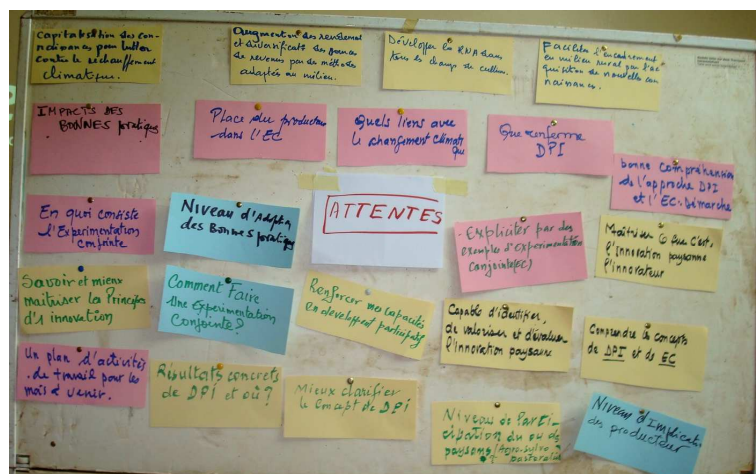 Capitalisation des con-
naissances pour lutter
contre le réchauffement
climatique.
Augmentation des rendements
et diversificat° des sources
de revenus par des méthodes
adaptées au milieu.
Développer la RNA dans
tous les champs de culture.
Faciliter l'encadrement
en milieu rural par l'ac
quisition de nouvelles con
naissances.
IMPACTS DES
BONNES pratiques
Place du producteur
dans l'EC
Quels liens avec
le changement climati
que
Que renferme
DPI
bonne compréhension
de l'approche DPI
et l'EC. Démarche
En quoi consiste
l'Experimentation
conjointe
Niveau d'Adopt°
des Bonnes pratiques
ATTENTES
- Expliciter par des
exemples d'Experimentation
Conjointe (EC)
Maîtriser ce que c'est
l'innovation paysanne
l'innovateur
Savoir et mieux
maîtriser les Principes
d'innovation
Comment Faire
Une Expérimentation
Conjointe?
Renforcer mes capacités
en developpent participatif
Capable d'identifier,
de valoriser et d'évaluer
l'innovation paysanne
Comprendre les concepts
de DPI et de EC
Un plan d'activités
de travail pour les
mois à venir.
Résultats concrets
de DPI et où?
Mieux clarifier
le Concept de DPI
Niveau de Parti-
cipation du ou des
paysans
Niveau d'Implicat°
des producteur